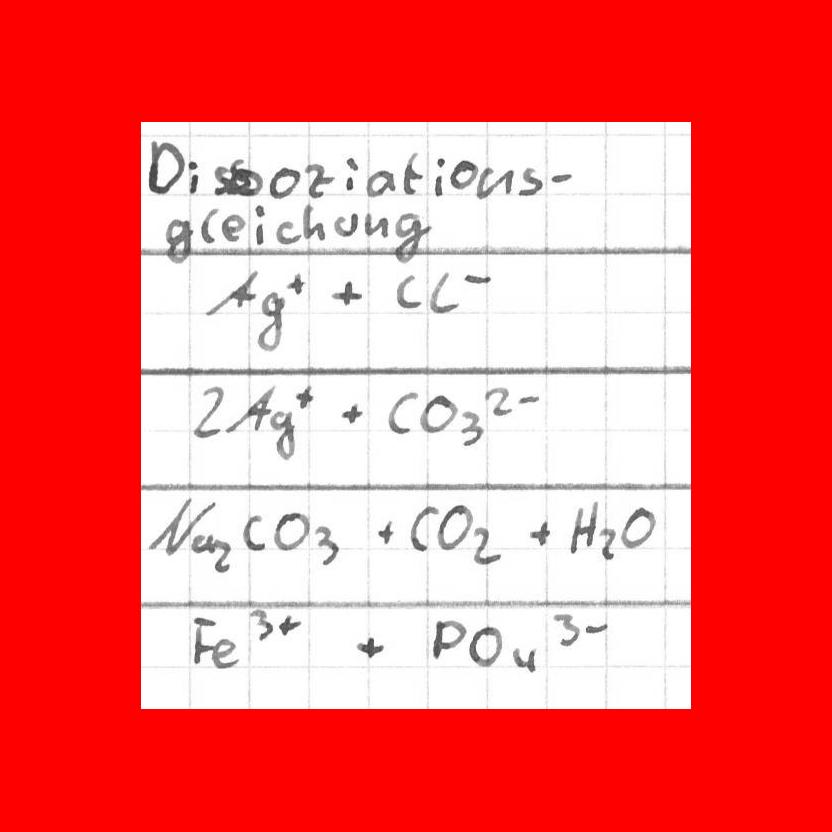 Dissoziations-
gleichung
Ag⁺ + Cl⁻
2Ag⁺ + CO₃²⁻
Na₂CO₃ + CO₂ + H₂O
Fe³⁺ + PO₄³⁻